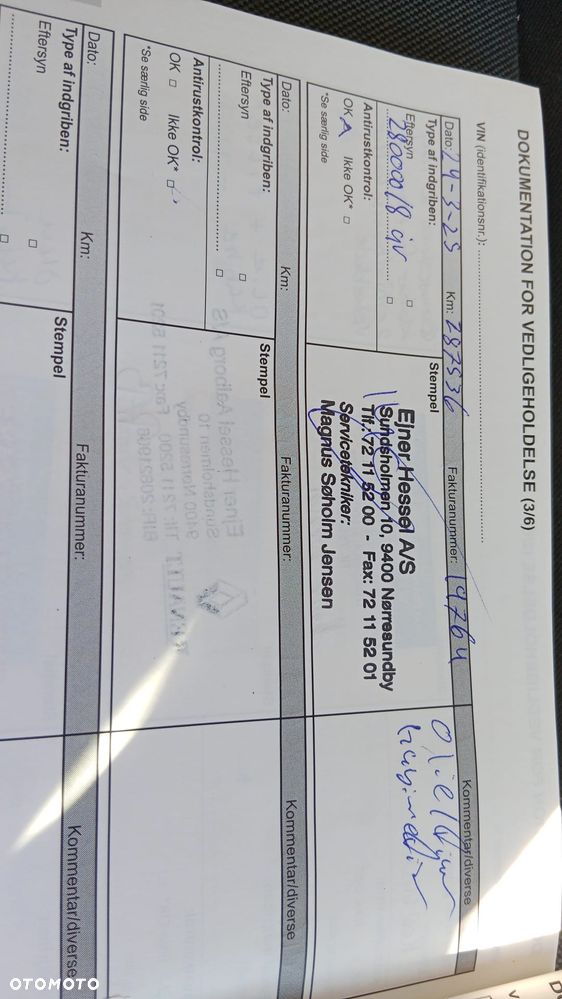 DOKUMENTATION FOR VEDLIGEHOLDELSE (3/6)
VIN (identifikationsnr.): ................
Dato: 24-3-25 Km: 287536 Fakturanummer: 19764 Kommentar/diverse
Type af indgriben: Stempel
Eftersyn □
280000/8 år □
Antirustkontrol:
OK Ikke OK* □
*Se særlig side
Ejner Hessel A/S
Sundsholmen 10, 9400 Nørresundby
Tlf.: 72 11 52 00 - Fax: 72 11 52 01
Servicetekniker:
Magnus Søholm Jensen
Dato: Km: Fakturanummer: Kommentar/diverse
Type af indgriben: Stempel
Eftersyn □
................ □
Antirustkontrol:
OK □ Ikke OK* □
*Se særlig side
Dato: Km: Fakturanummer: Kommentar/diverse
Type af indgriben: Stempel
Eftersyn □
................ □
OTOMOTO